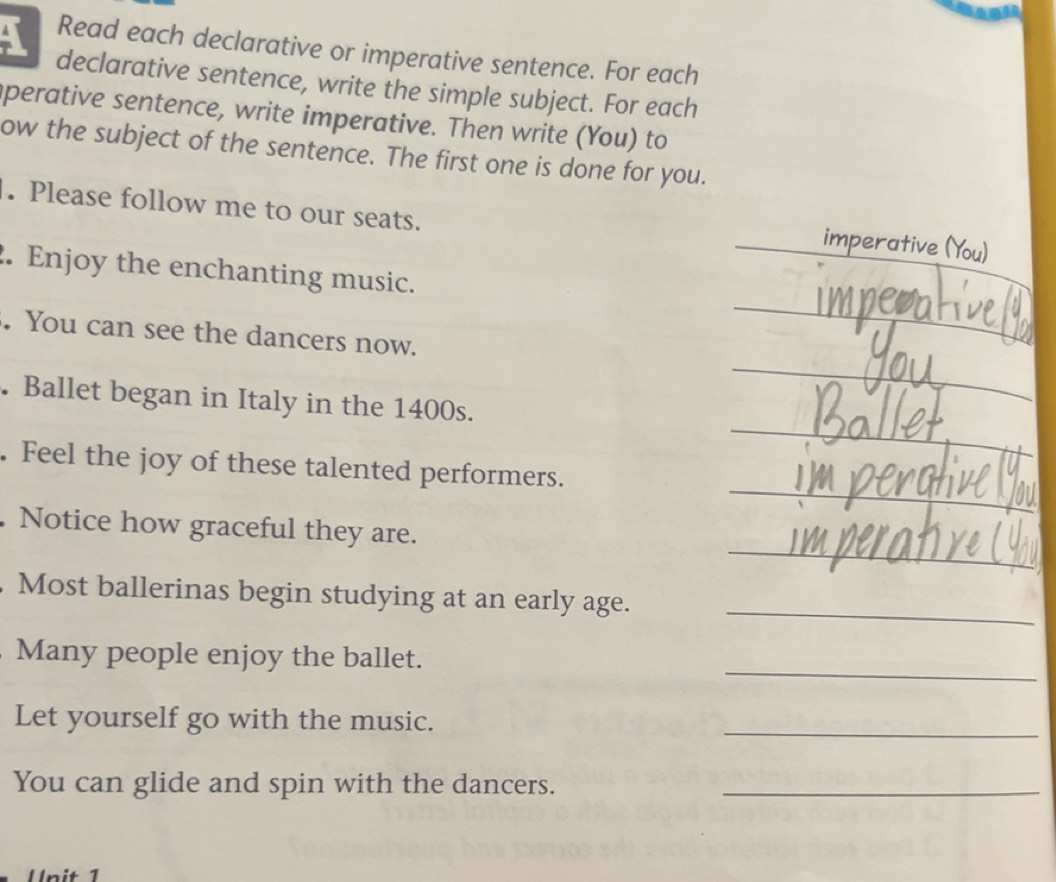 A Read each declarative or imperative sentence. For each
declarative sentence, write the simple subject. For each
perative sentence, write imperative. Then write (You) to
ow the subject of the sentence. The first one is done for you.
1. Please follow me to our seats. imperative (You)
2. Enjoy the enchanting music. imperative (You
. You can see the dancers now. You
. Ballet began in Italy in the 1400s. Ballet
. Feel the joy of these talented performers. imperative (You
. Notice how graceful they are. imperative (You
. Most ballerinas begin studying at an early age.
. Many people enjoy the ballet.
Let yourself go with the music.
You can glide and spin with the dancers.
Unit 1